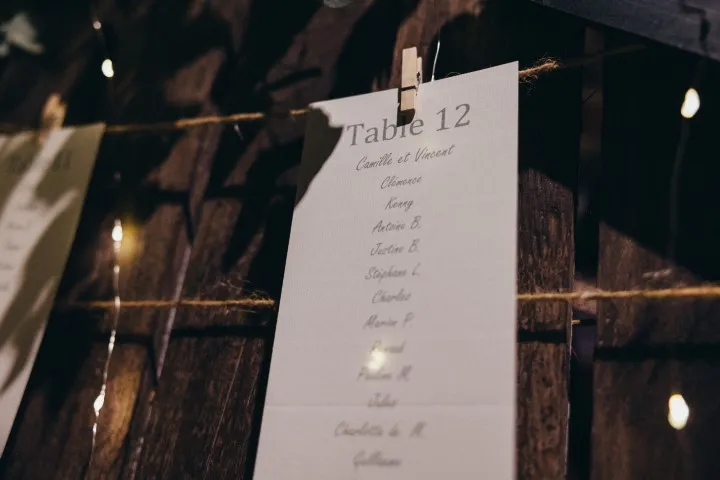 Table 12
Camille et Vincent
Clémence
Kenny
Antoine B.
Justine B.
Stéphane L.
Charles
Marine P.
Pauline M.
Jules
Charlotte de M.
Guillaume